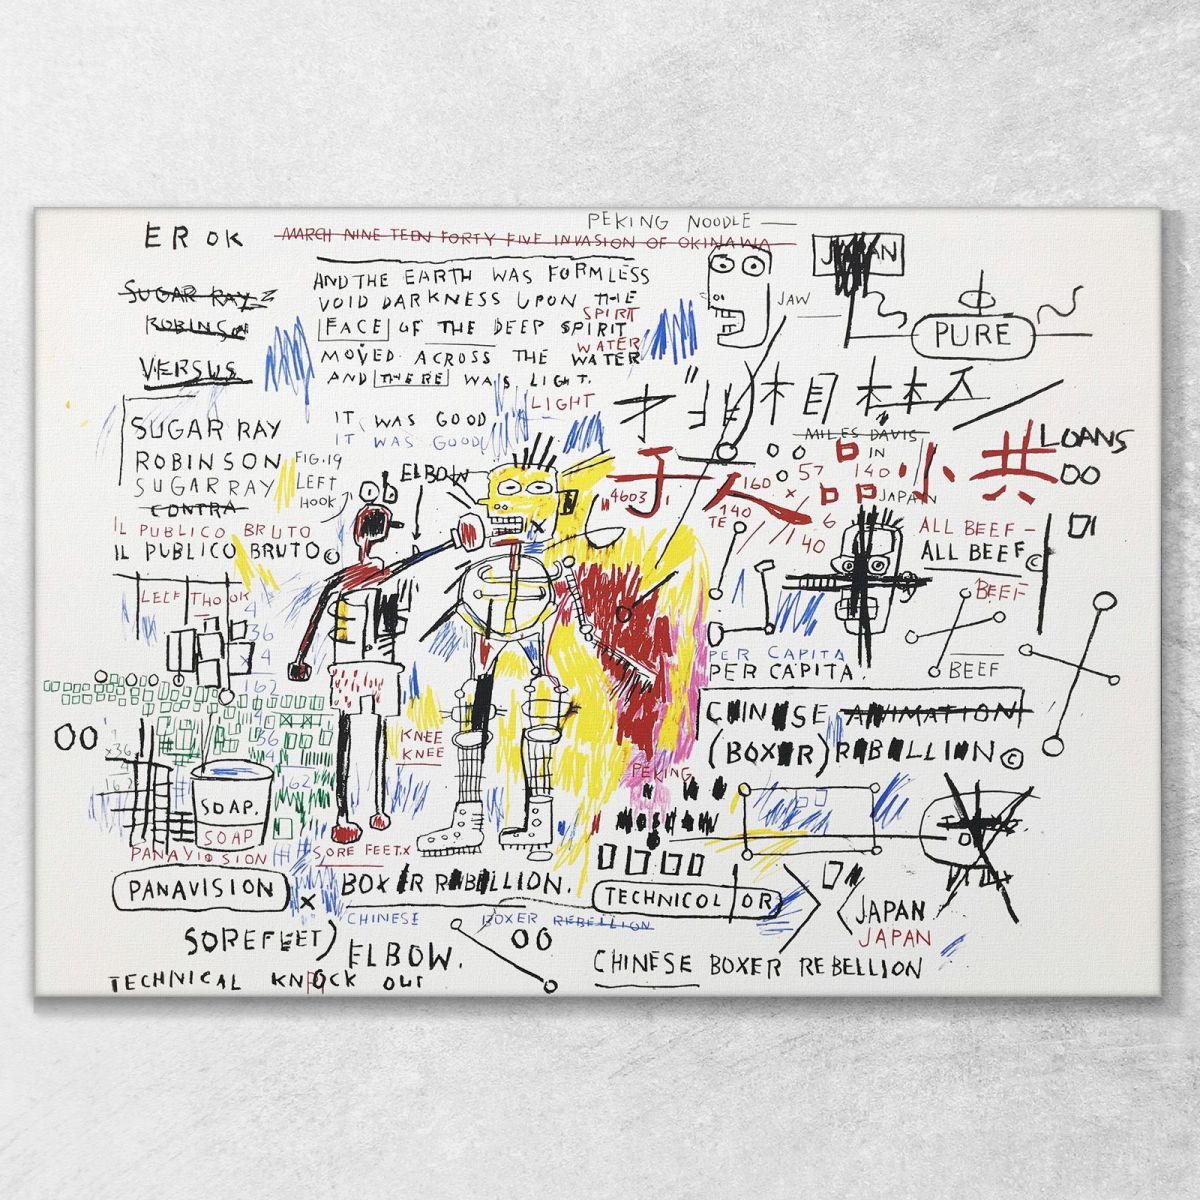 PEKING NOODLE
EROK
MARCH NINE TEEN FORTY FIVE INVASION OF OKINAWA
JAPAN
SUGAR RAY
ROBINSON
VERSUS
AND THE EARTH WAS FORMLESS
VOID DARKNESS UPON THE
SPIRIT
FACE OF THE DEEP SPIRIT
WATER
MOVED ACROSS THE WATER
AND THERE WAS LIGHT.
LIGHT
JAW
PURE
IT WAS GOOD
IT WAS GOOD
SUGAR RAY
ROBINSON
SUGAR RAY
CONTRA
IL PUBLICO BRUTO
IL PUBLICO BRUTO©
FIG.19
LEFT
HOOK
ELBOW
MILES DAVIS
IN
JAPAN
LOANS
00
于人品小共
4603
160
57
140
140
TE
x 6
40
ALL BEEF-
ALL BEEF©
BEEF
BEEF
LEEF THOOK
4
36
x 4
162
4
36
4
162
00
x36
62
PER CAPITA
PER CAPITA.
CHINESE ANIMATION
(BOXER) REBELLION©
KNEE
KNEE
PEKING
MOSCOW
SOAP.
SOAP
PANAVISION
PANAVISION
SORE FEET.X
x
BOXER REBELLION.
CHINESE BOXER REBELLION
TECHNICOLOR
JAPAN
JAPAN
SOREFEET)
ELBOW.
00
CHINESE BOXER REBELLION
TECHNICAL KNOCK OUT